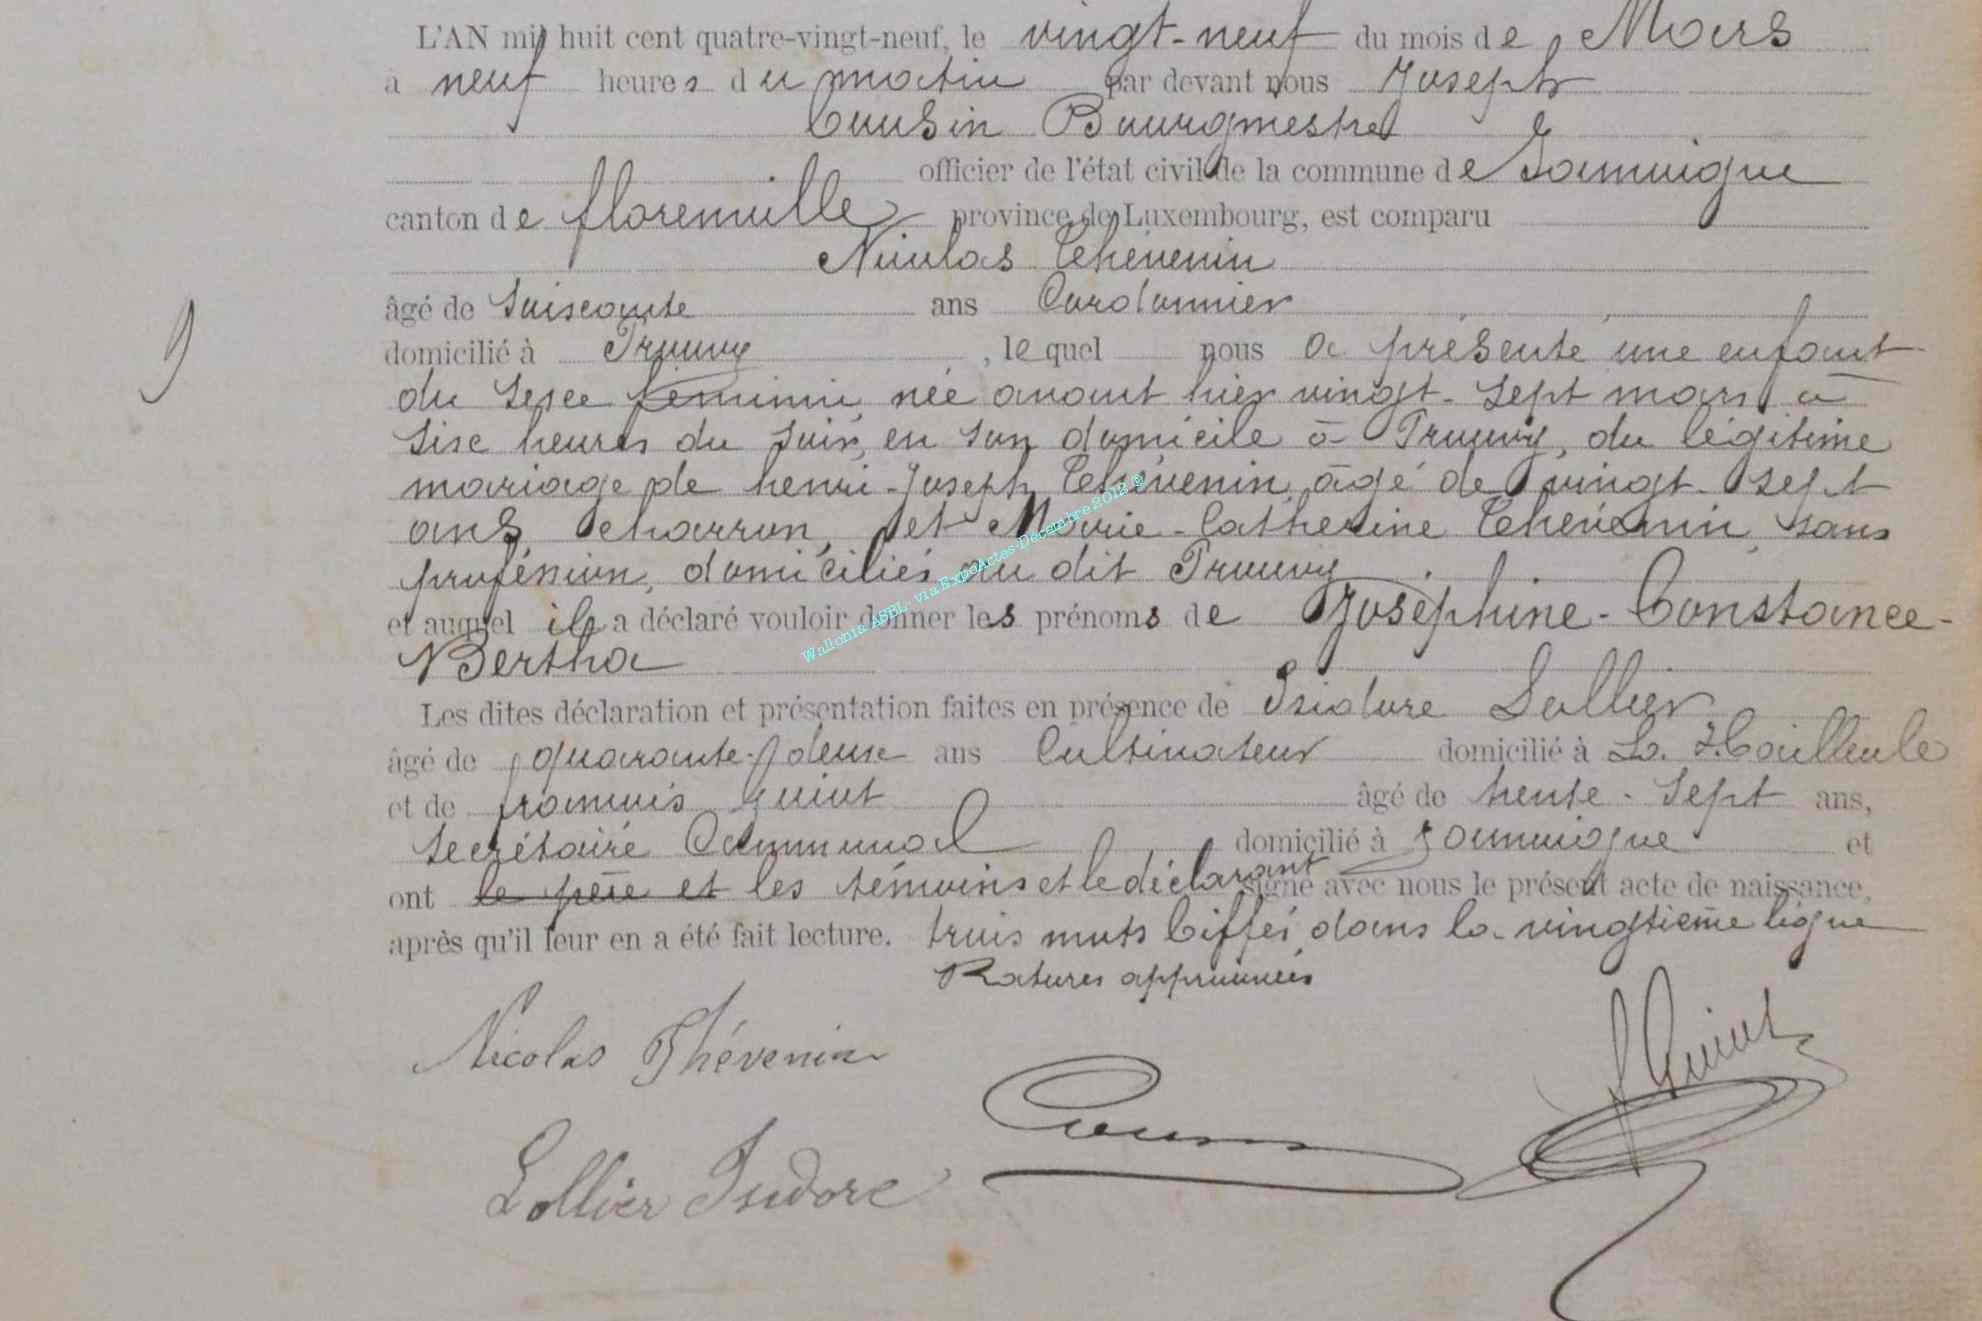 L'AN mil huit cent quatre-vingt-neuf, le vingt-neuf du mois de Mars
à neuf heures du matin par devant nous Joseph
Cousin Bourgmestre
officier de l'état civil de la commune de Jamoigne
canton de florenville province de Luxembourg, est comparu
Nicolas Thévenin
âgé de soixante ans Cordonnier
domicilié à Prouvy, lequel nous a présenté une enfant
du sexe féminin, née avant hier vingt-sept mars à
six heures du soir, en son domicile à Prouvy, du légitime
mariage de henri-Joseph Thévenin, âgé de vingt-sept
ans charron, et Marie-Catherine Thévenin, sans
profession, domiciliés au dit Prouvy
et auquel il a déclaré vouloir donner les prénoms de Joséphine-Constance-
Bertha
Les dites déclaration et présentation faites en présence de Isidore Lollier
âgé de quarante-deux ans Cultivateur domicilié à La Hailleule
et de françois Guiot âgé de trente-sept ans,
secrétaire Communal domicilié à Jamoigne et
ont le père et les témoins et le déclarant signé avec nous le présent acte de naissance,
après qu'il leur en a été fait lecture. trois mots biffés dans la vingtième ligne
Ratures approuvées
Nicolas Thévenin
F Guiot
Cousin
Lollier Isidore
9
Wallonia ASBL- via ExpoActes-Décembre 2012 ©